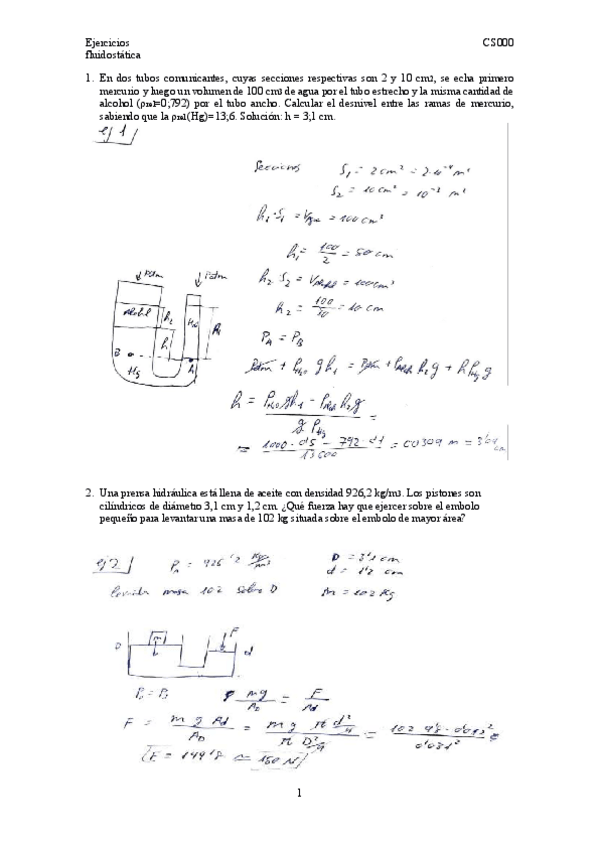 Ejercicios CS000
fluidostática
1. En dos tubos comunicantes, cuyas secciones respectivas son 2 y 10 cm2, se echa primero
mercurio y luego un volumen de 100 cm3 de agua por el tubo estrecho y la misma cantidad de
alcohol (ρrel=0;792) por el tubo ancho. Calcular el desnivel entre las ramas de mercurio,
sabiendo que la ρrel(Hg)=13;6. Solución: h = 3;1 cm.
ej 1
Secciones S₁ = 2 cm² = 2·10⁻⁴ m²
S₂ = 10 cm² = 10⁻³ m²
h₁·S₁ = Vagua = 100 cm³
h₁ = 100/2 = 50 cm
Patm Patm
h₂ S₂ = Valcohol = 100 cm³
alcohol h₂
h₂ = 100/10 = 10 cm
h
B
Hg
P_A = P_B
Patm + ρH₂O g h₁ = Patm + ρalcoh h₂ g + h ρHg g
h = ρH₂O g h₁ - ρalcoh h₂ g / g ρHg =
= 1000 · 0'5 - 792 · 0'1 / 13600 = 0'0309 m = 3'09 cm
2. Una prensa hidráulica está llena de aceite con densidad 926,2 kg/m3. Los pistones son
cilíndricos de diámetro 3,1 cm y 1,2 cm. ¿Qué fuerza hay que ejercer sobre el embolo
pequeño para levantar una masa de 102 kg situada sobre el embolo de mayor área?
ej 2 = 926'2 kg/m³ D = 3'1 cm
d = 1'2 cm
levantar masa 102 sobre D m = 102 Kg
D m F d
mg/A_D = F/Ad
F = m g Ad / A_D = m g π d²/4 / π D²/4 = 102 9'8 · 0'012² / 0'031² =
F = 149'8 ≃ 150 N
1